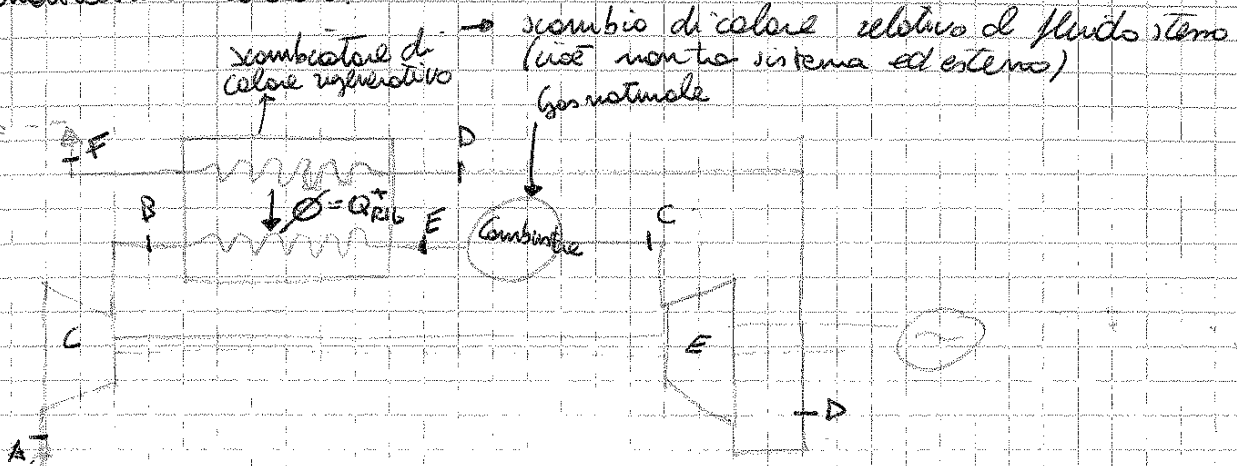 → scambio di calore relativo al fluido stesso
(cioè non tra sistema ed esterno)
scambiatore di
calore rigenerativo
Gas naturale
F
D
B
Ø = Q⁺RIG
E
Combustore
C
C
E
~
D
A